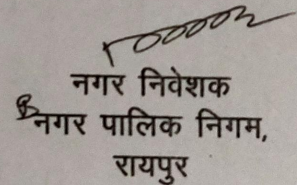 नगर निवेशक
नगर पालिक निगम,
रायपुर